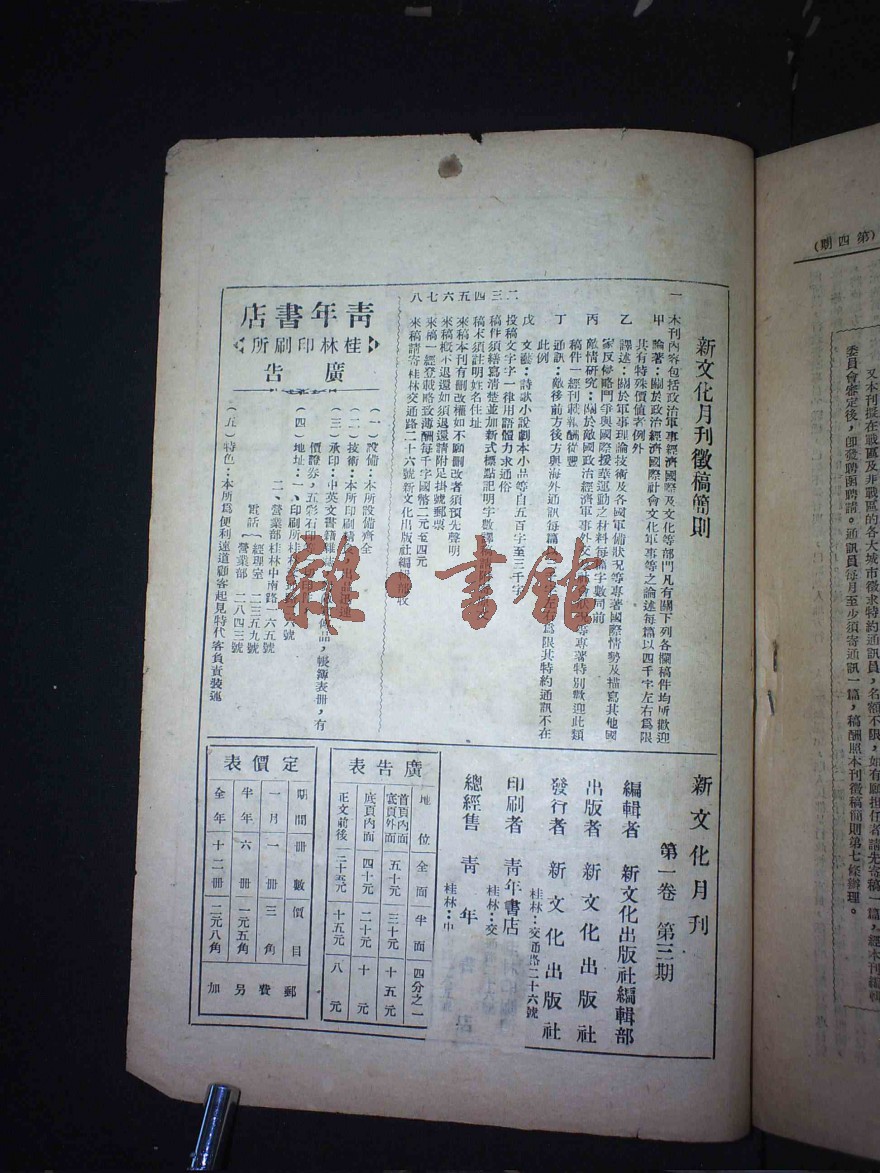 新文化月刊徵稿簡則
一 本刊內容包括政治軍事經濟國際及文化等部門凡有關下列各欄稿件均所歡迎
甲 論著：關於政治經濟國際社會文化軍事等之論述每篇以四千字左右為限
共有特殊價值者例外
乙 譯述：關於軍事理論技術及各國軍備狀況等專著國際情勢及描寫其他國
家反侵略鬥爭與國際援華運動之材料每篇字數同前
丙 敵情研究：關於敵國政治經濟軍事外交 等專著特別歡迎此類
稿件一經刊載報酬從豐
丁 通訊：敵後前方後方與海外通訊每篇 左右為限其特約通訊不在
此例
戊 文藝：詩歌小說劇本小品等自五百字至三千字
二 投稿文字一律用語體力求通俗
三 稿件須繕寫清楚並加新式標點記明字數譯稿請附
四 稿末須註明姓名住址
五 來稿本刊有刪改權如不願刪改者須預先聲明
六 來稿概不退還如須退還請附足掛號郵票
七 來稿一經登載略致薄酬每千字國幣二元至四元
八 來稿請寄桂林交通路二十六號新文化出版社編輯部收
青年書店
桂林印刷所
廣告
(一)設備：本所設備齊全
(二)技術：本所印刷精 出品迅速
(三)承印：中英文書籍雜誌 品，帳簿表冊，有
價證券，五彩石印
(四)地址：一、印刷所桂林 六號
二、營業部桂林中南路一六五號
電話 經理室 二三五九號
營業部 二八四三號
(五)特色：本所為便利遠道顧客起見特代客負責裝運
新文化月刊
第一卷 第三期
編輯者 新文化出版社編輯部
出版者 新文化出版社
發行者 新文化出版社
桂林：交通路二十六號
印刷者 青年書店
桂林：交
總經售 青年
桂林：中
廣告表
地位 全面 半面 四分之一
首頁內面 底頁外面 五十元 三十元 十五元
底頁內面 四十元 二十元 十元
正文前後 二十五元 十五元 八元
定價表
期間 冊數 價目
一月 一冊 三角
半年 六冊 一元五角
全年 十二冊 二元八角
郵費另加
雜·書館
(第四期)
又本刊擬在戰區及非戰區的各大城市徵求特約通訊員，名額不限，如有願担任者請先寄稿一篇，經本刊編輯
委員會審定後，即發聘函聘請。通訊員每月至少須寄通訊一篇，稿酬照本刊徵稿簡則第七條辦理。